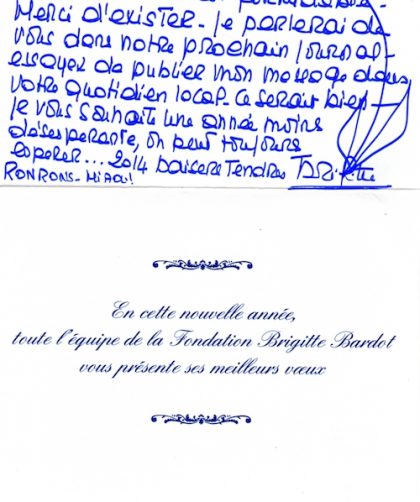 Merci d'exister - Je parlerai de
vous dans notre prochain journal -
essayez de publier mon message dans
votre quotidien local - ce serait bien -
Je vous souhaite une année moins
désespérante, on peut toujours
espérer... 2014 baisers Tendres Brigitte
RONRONS - MIAOU!
En cette nouvelle année,
toute l'équipe de la Fondation Brigitte Bardot
vous présente ses meilleurs vœux